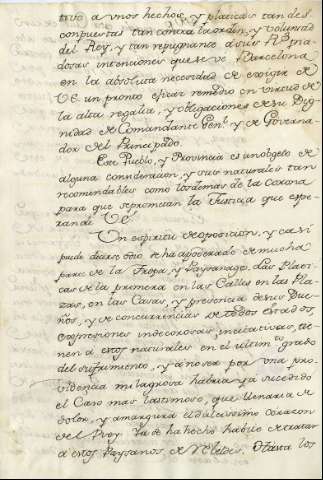 tivo a unos hechos, y platicas tan des
compuestas tan contra la orden, y voluntad
del Rey, y tan repugnante a sus Rs pia
dosas intenciones que se ve Barcelona
en la absoluta necesidad de exigir de
VE un pronto eficaz remedio en virtud de
la alta regalia, y obligaciones de su Dig
nidad de Comandante Genl y de Governa
dor del Principado.
Este Pueblo, y Provincia es un objeto de
alguna consideracion, y sus naturales tan
recomendables como los demas de la Corona
para que se prometan la Justicia que espe
ran de VE.
Un espiritu de oposicion, y casi
pude decirse odio se ha apoderado de mucha
parte de la Tropa, y Paysanage. Las Platic
as de la primera en las Calles en las Pla
zas, en las Casas, y presencia de sus Due
ños, y de concurrencias de todos estados,
expresiones indecorosas, incitativas, tie
nen a estos naturales en el ultimo grado
del sufrimiento, y a no ser por una pro
videncia milagrosa habria ya sucedido
el Caso mas lastimoso, que llenaria de
dolor, y amargura el dulcissimo corazon
del Rey. Ya de hecho hablo de tratar
a estos Paysanos de Rebeldes. Hasta los